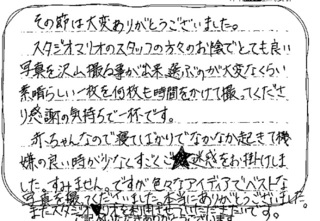 その節は大変ありがとうございました。
スタジオマリオのスタッフの方々のお陰でとても良い
写真を沢山撮る事が出来、選ぶのが大変なくらい
素晴らしい一枚を何枚も時間をかけて撮ってくださ
り感謝の気持ちで一杯です。
赤ちゃんなので寝てばかりでなかなか起きて機
嫌の良い時が少なくすごくご迷惑をお掛けしま
した。すみません。ですが色々なアイディアでベストな
写真を撮ってくださいました。本当にありがとうございました。
またスタジオマリオを利用させていただきたいです。